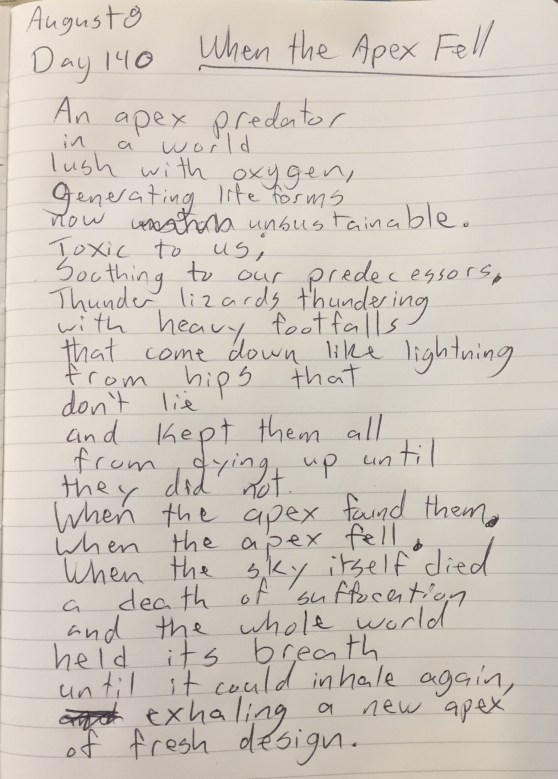 August 8
Day 140 When the Apex Fell
An apex predator
in a world
lush with oxygen,
generating life forms
now unsustainable.
Toxic to us,
Soothing to our predecessors.
Thunder lizards thundering
with heavy footfalls
that come down like lightning
from hips that
don't lie
and kept them all
from dying up until
they did not.
When the apex found them.
When the apex fell.
When the sky itself died
a death of suffocation
and the whole world
held its breath
until it could inhale again,
exhaling a new apex
of fresh design.